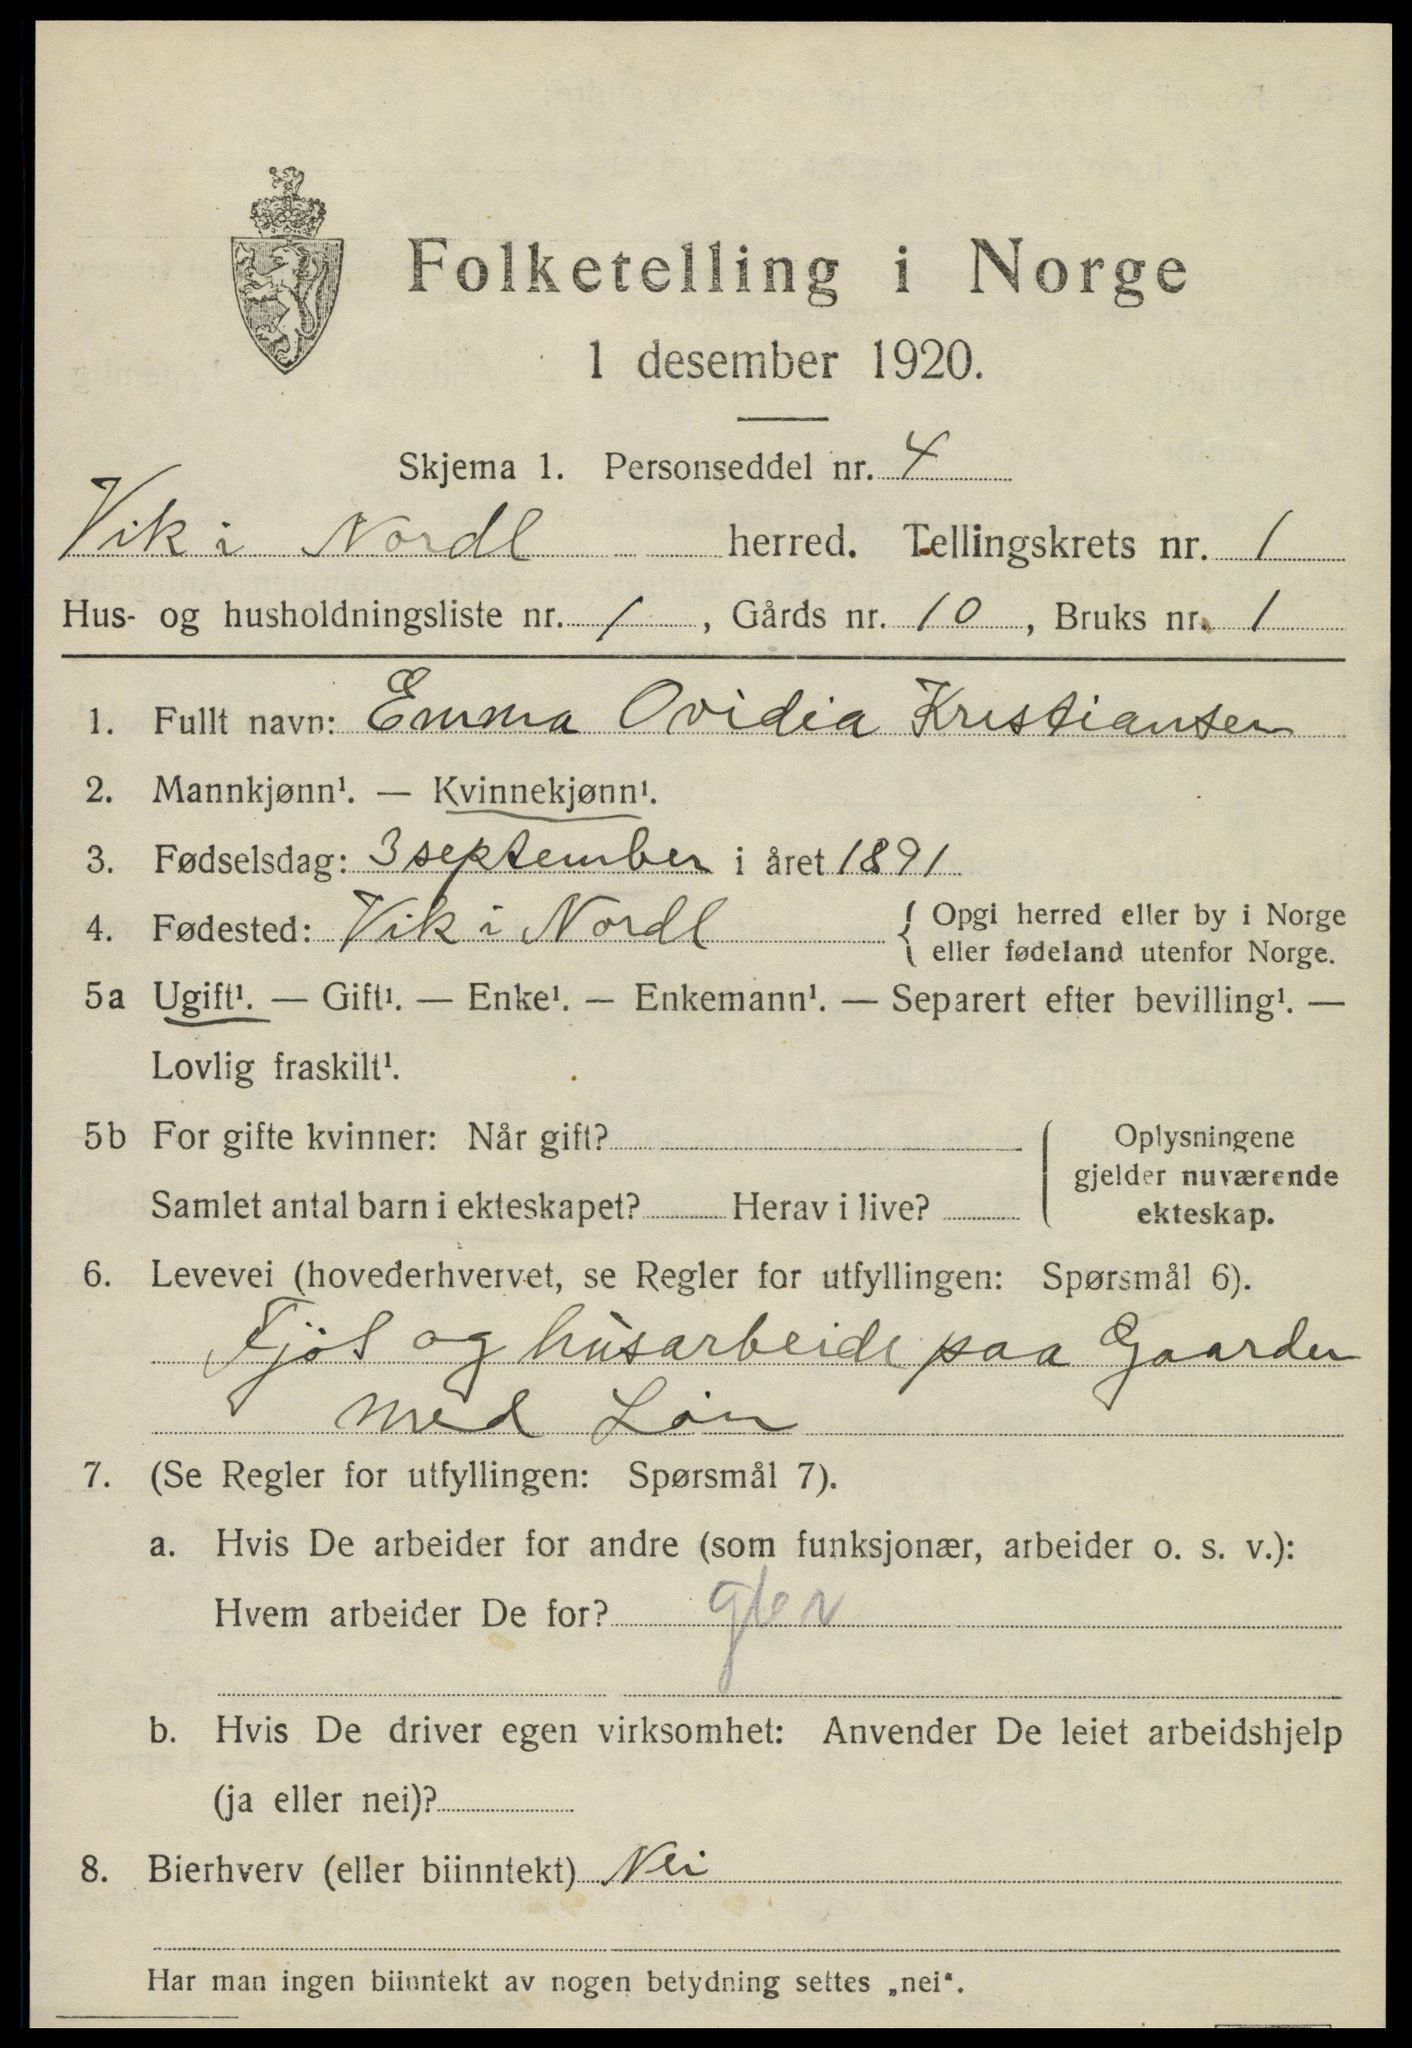 Folketelling i Norge
1 desember 1920.
Skjema 1. Personseddel nr. 4
Vik i Nordl herred. Tellingskrets nr. 1
Hus- og husholdningsliste nr. 1, Gårds nr. 10, Bruks nr. 1
1. Fullt navn: Emma Ovidia Kristiansen
2. Mannkjønn¹. — Kvinnekjønn¹.
3. Fødselsdag: 3 september i året 1891
4. Fødested: Vik i Nordl { Opgi herred eller by i Norge
eller fødeland utenfor Norge.
5a Ugift¹. — Gift¹. — Enke¹. — Enkemann¹. — Separert efter bevilling¹. —
Lovlig fraskilt¹.
5b For gifte kvinner: Når gift?
Samlet antal barn i ekteskapet? Herav i live?
Oplysningene
gjelder nuværende
ekteskap.
6. Levevei (hovederhvervet, se Regler for utfyllingen: Spørsmål 6).
Fjøs og husarbeide paa Gaarden
med Løn
7. (Se Regler for utfyllingen: Spørsmål 7).
a. Hvis De arbeider for andre (som funksjonær, arbeider o. s. v.):
Hvem arbeider De for?
b. Hvis De driver egen virksomhet: Anvender De leiet arbeidshjelp
(ja eller nei)?
8. Bierhverv (eller biinntekt) Nei
Har man ingen biinntekt av nogen betydning settes „nei“.